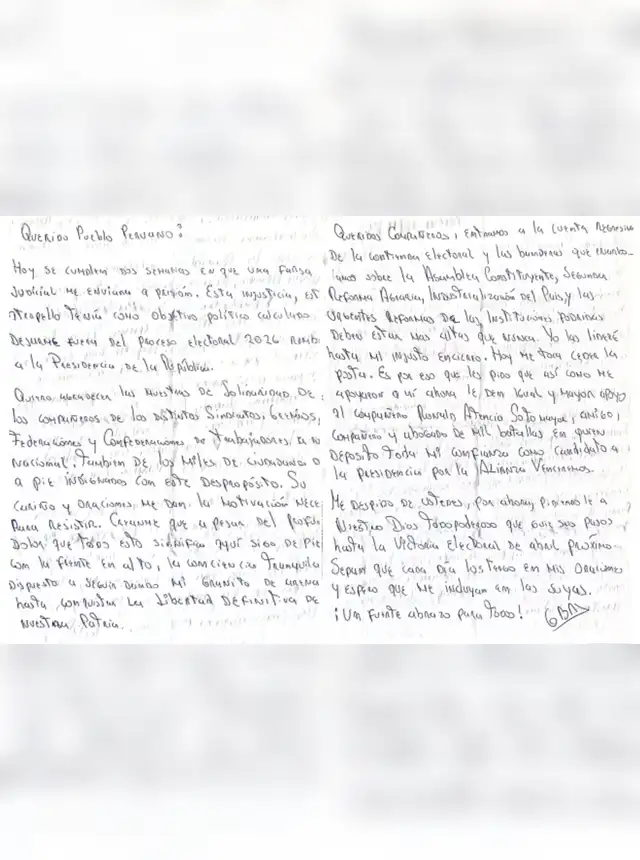 Querido Pueblo Peruano:
Hoy se cumplen dos semanas en que una farsa
judicial me enviara a prisión. Esta injusticia, est
atropello tenía como objetivo político calculado
Dejarme fuera del proceso electoral 2026 rumbo
a la Presidencia, de la República.
Quiero agradecer las muestras de Solidaridad, de
los compañeros, de los distintos Sindicatos, Gremios,
Federaciones y Confederaciones, de Trabajadores, a n
nacional. Tambien de los miles de ciudadanos
a pie indignados con este despropósito. Su
cariño y oraciones me dan la motivación nece
para resistir. Créanme que a pesar del profun
Dolor que todo esto significa aquí sigo de pie
con la frente en alto, la conciencia tranquila
dispuesto a seguir dando mi granito de arena
hasta conquistar la Libertad Definitiva de
nuestra Patria.
Queridos Compañeros, entramos a la cuenta regresiva
de la contienda electoral y las banderas que
sobre la Asamblea Constituyente, Segunda
Reforma Agraria, Industrialización del País, y las
urgentes Reformas de las Instituciones
Deben estar más altas que nunca. Yo las lideré
hasta mi injusto encierro. Hoy me toca ceder la
posta. Es por eso que les pido que así como me
apoyaron a mí ahora le den igual y mayor apoyo
al compañero Ronald Atencio Sotomayor, amigo,
compañero y abogado de mil batallas en quien
deposito toda mi confianza como candidato a
la presidencia por la Alianza Venceremos.
Me despido de ustedes, por ahora, pidiendole a
Nuestro Dios Todopoderoso que guie sus pasos
hasta la Victoria Electoral de abril próximo.
Sepan que cada día los tengo en mis oraciones
y espero que me incluyan en las suyas.
¡Un fuerte abrazo para todos! GBM